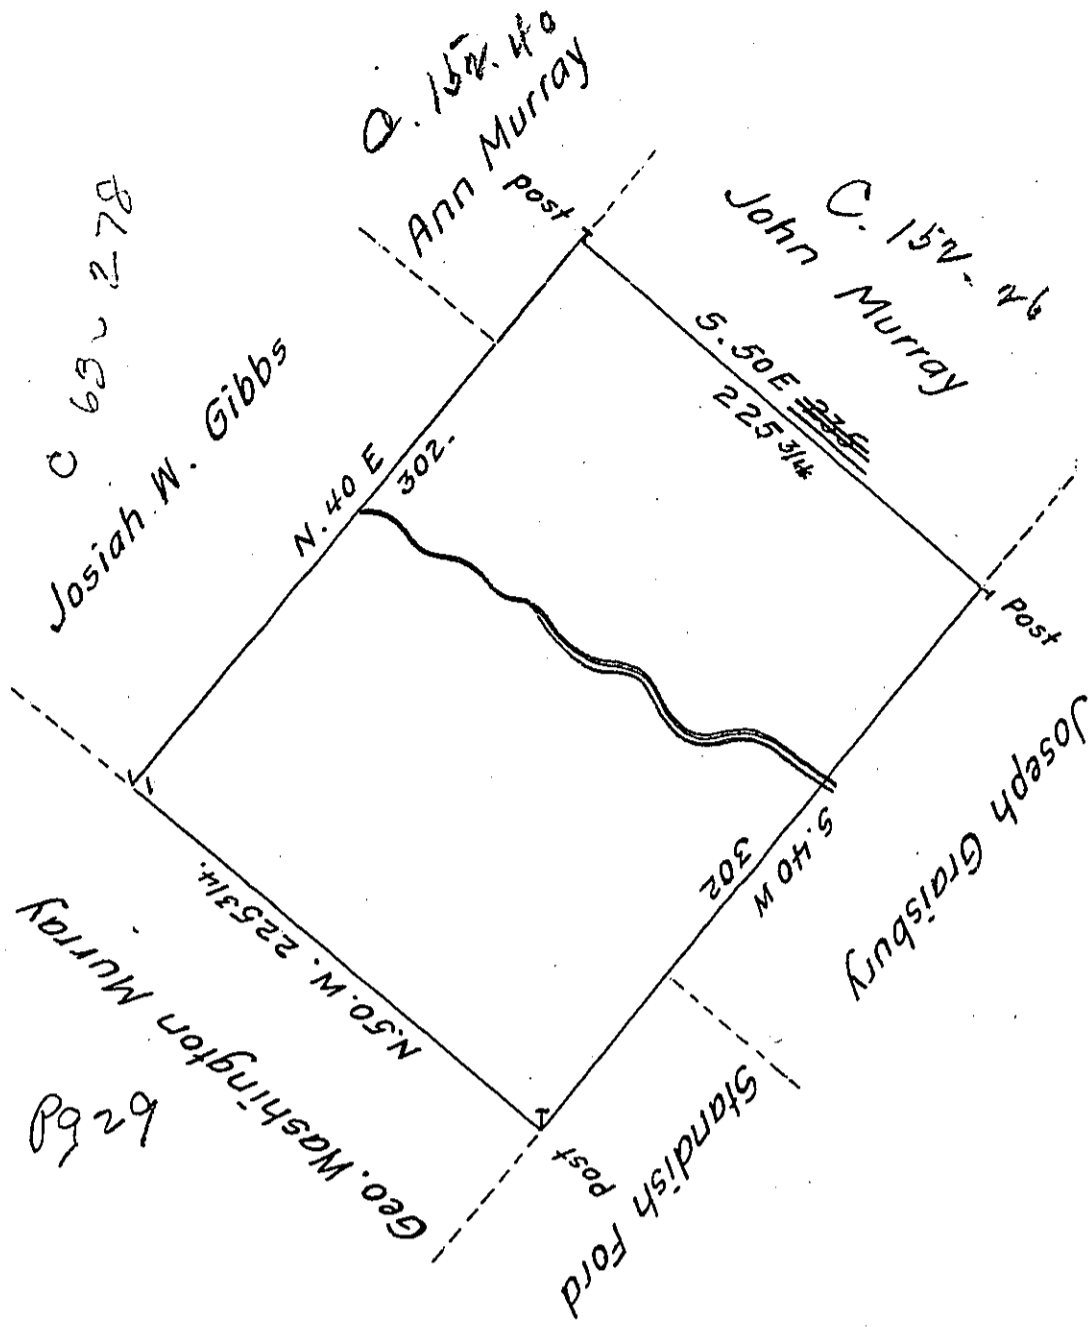 C 63 - 278
Josiah. W. Gibbs
152. 40
Ann Murray
post
C. 152 - 26
John Murray
N. 40 E
302.
S. 50 E
225 3/4
Post
Joseph Graisbury
S. 40 W
302
Standish Ford
Post
N. 50. W. 225 3/4.
Geo. Washington Murray
Pg 29